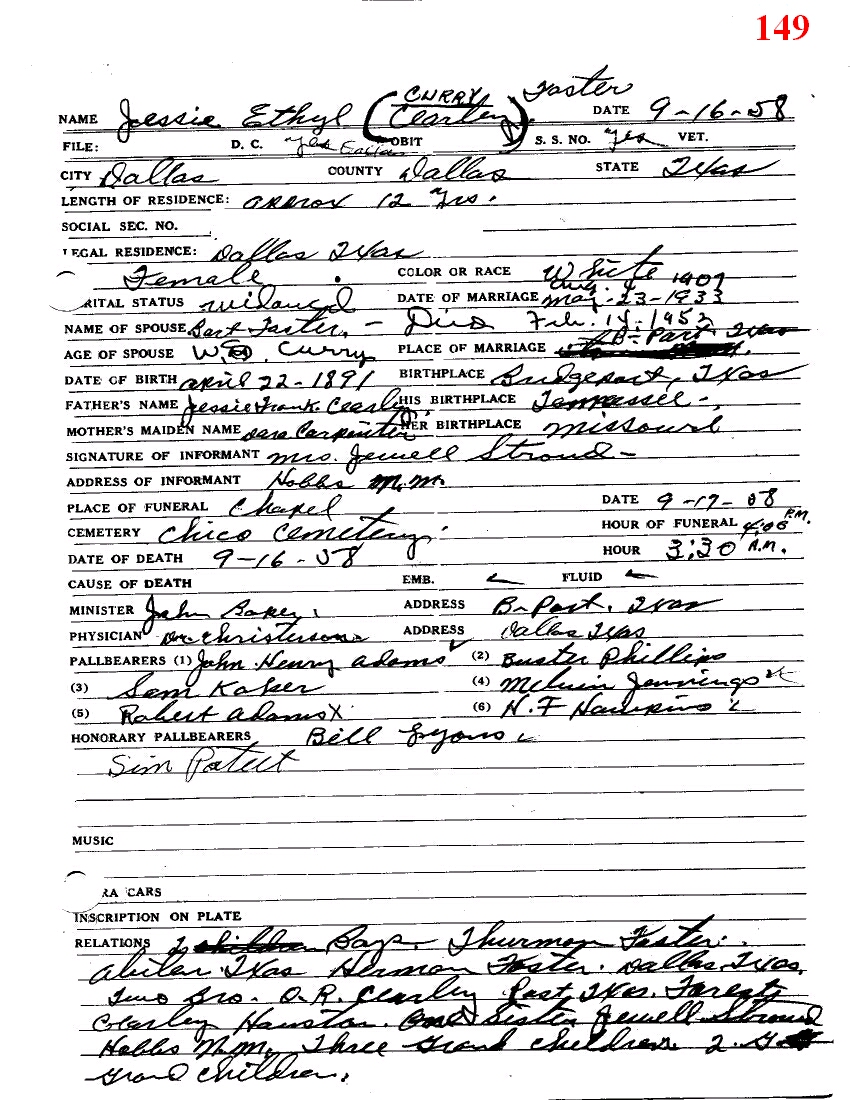 149
CURRY Foster
NAME Jessie Ethyl (Cearley) DATE 9-16-58
FILE: D. C. yes OBIT S. S. NO. yes VET.
CITY Dallas COUNTY Dallas STATE Texas
LENGTH OF RESIDENCE: approx 12 yrs.
SOCIAL SEC. NO.
LEGAL RESIDENCE: Dallas Texas
Female COLOR OR RACE White
Aug. 4 1907
RITAL STATUS widowed DATE OF MARRIAGE may-23-1933
NAME OF SPOUSE Bart Foster, - Died Feb. 14-1952
AGE OF SPOUSE W.D. Curry PLACE OF MARRIAGE B-Port Texas
DATE OF BIRTH april 22-1891 BIRTHPLACE Bridgeport, Texas
FATHER'S NAME Jessie Frank Cearley HIS BIRTHPLACE Tennessee -
MOTHER'S MAIDEN NAME Sara Carpinter HER BIRTHPLACE Missouri
SIGNATURE OF INFORMANT mrs. Jewell Stroud -
ADDRESS OF INFORMANT Hobbs N.M.
PLACE OF FUNERAL Chapel DATE 9-17-58
CEMETERY Chico Cemetery HOUR OF FUNERAL 4:00 P.M.
DATE OF DEATH 9-16-58 HOUR 3:30 A.M.
CAUSE OF DEATH EMB. FLUID
MINISTER John Baker ADDRESS B-Port. Texas
PHYSICIAN Dr. Christerson ADDRESS Dallas Texas
PALLBEARERS (1) John Henry adams (2) Buster Phillips
(3) Sam Kaker (4) Melvin Jennings
(5) Robert adams X (6) H.F Hawkins
HONORARY PALLBEARERS Bill Lyons
Sim Pateet
MUSIC
RA CARS
INSCRIPTION ON PLATE
RELATIONS 2 Boys. Thurman Foster.
Abilen. Texas Herman Foster. Dallas, Texas.
Two Bro. O.R. Cearley Post Texas. Forest
Cearley Houston. One Sister Jewell Stroud
Hobbs N.M. Three Grand children 2. G
Grand children.